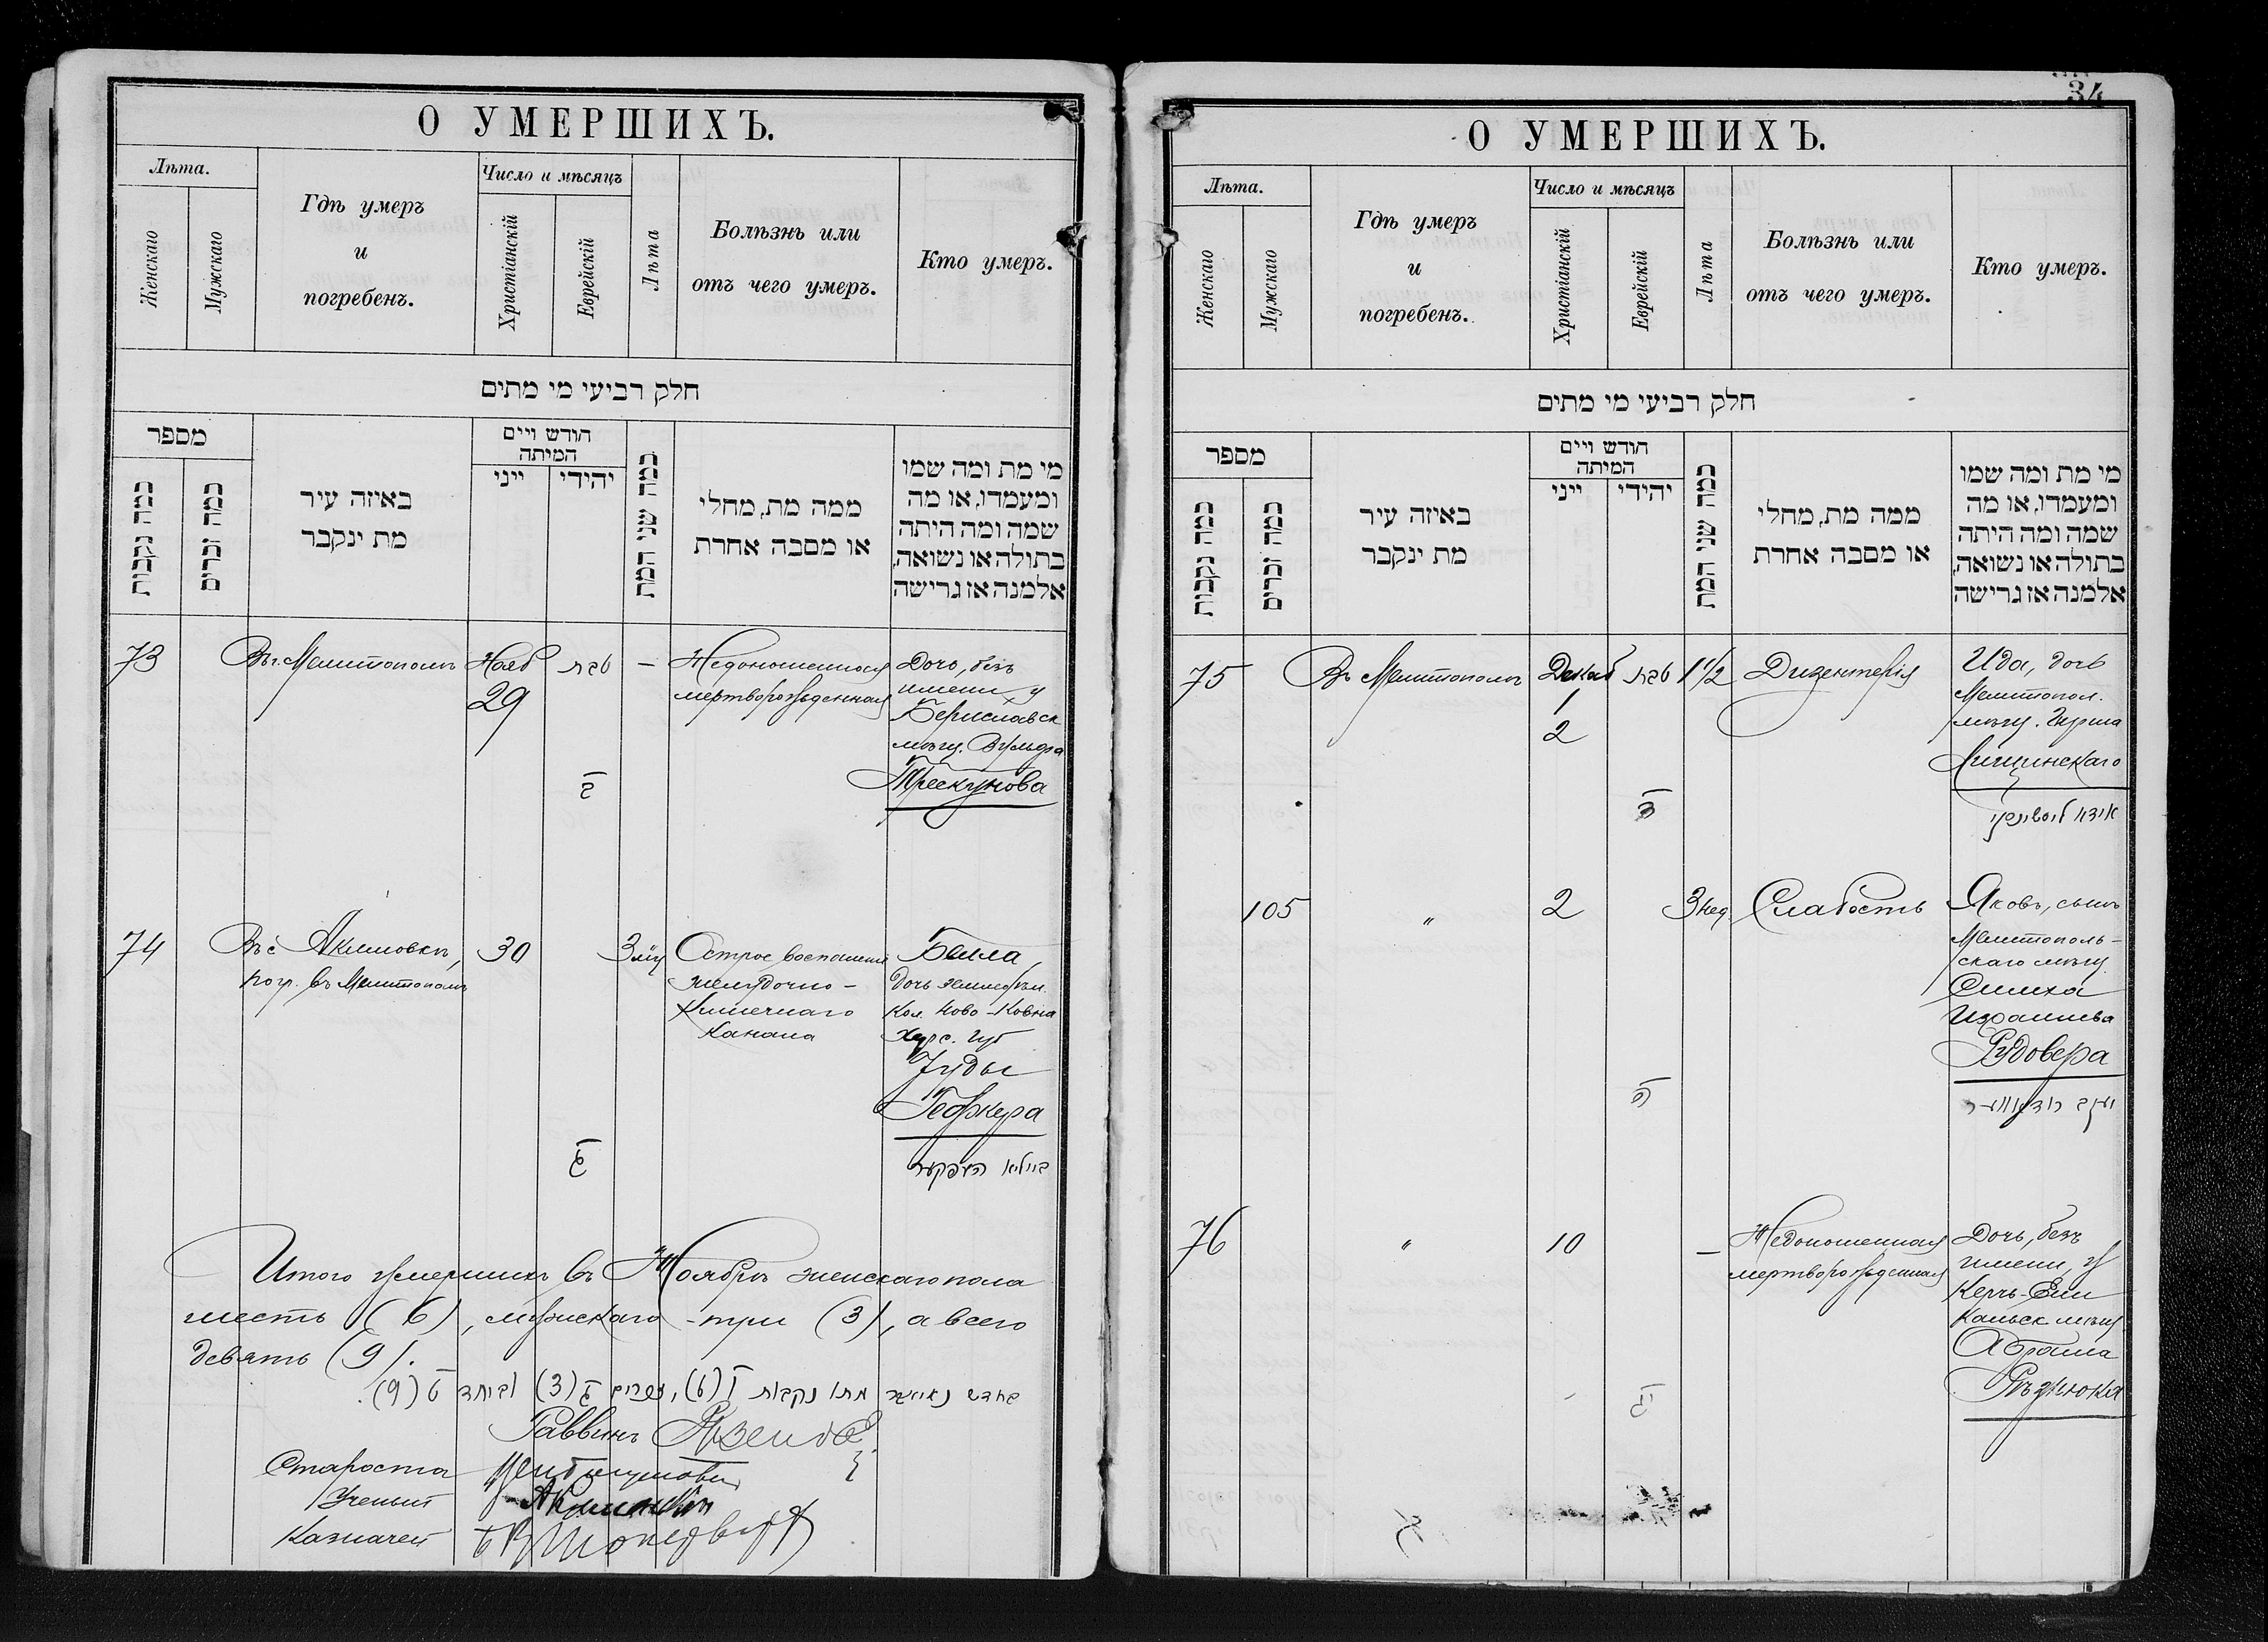 О УМЕРШИХЪ.
Лѣта.
Женскаго
Мужскаго
Гдѣ умеръ
и
погребенъ.
Число и мѣсяцъ
Христіанскій
Еврейскій
Лѣта
Болѣзнь или
отъ чего умеръ.
Кто умеръ.
חלק רביעי מי מתים
מספר
כמה נקבות
כמה זכרים
באיזה עיר
מת ינקבר
חודש ויים
המיתה
ייני
יהודי
כמה שני המת
ממה מת, מחלי
או מסבה אחרת
מי מת ומה שמו
ומעמדו, או מה
שמה ומה היתה
בתולה או נשואה,
אלמנה אז גרישה
73
Въ г. Мелитополѣ
Нояб
29
טבת
ב
—
Недоношенная
мертворожденная
Дочь, безъ
имени, у
Бериславск
мѣщ. Вульфа
Трескунова
74
Въ с Акимовкѣ,
погр. въ Мелитополѣ
30
ג
3
Острое воспаленіе
желудочно-
кишечнаго
канала
Бейла,
дочь
Кол. Ново-Ковна
Херс. Губ
Іуды
Гефкера
ביילא העפקער
Итого умершихъ въ Ноябрѣ женскаго пола
шесть (6), мужскаго - три (3), а всего
девять (9).
בחדש נאיאבר מתו נקבות ו (6), זכרים ג (3) וביחד ט (9).
Раввинъ
Староста
Ученый
Казначей
34
О УМЕРШИХЪ.
Лѣта.
Женскаго
Мужскаго
Гдѣ умеръ
и
погребенъ.
Число и мѣсяцъ
Христіанскій
Еврейскій
Лѣта
Болѣзнь или
отъ чего умеръ.
Кто умеръ.
חלק רביעי מי מתים
מספר
כמה נקבות
כמה זכרים
באיזה עיר
מת ינקבר
חודש ויים
המיתה
ייני
יהודי
כמה שני המת
ממה מת, מחלי
או מסבה אחרת
מי מת ומה שמו
ומעמדו, או מה
שמה ומה היתה
בתולה או נשואה,
אלמנה אז גרישה
75
Въ Мелитополѣ
Декаб
1
2
טבת
1 1/2
Дизентерія
Ида, дочь
Мелитопол.
мѣщ. Гирша
Лищинскаго
אידא לישצינסקי
105
"
2
ה
3 нед.
Слабость
Яковъ, сынъ
Мелитополь-
скаго мѣщ.
Симха
Израилева
Рудовера
יעקב רודאווער
76
"
10
יג
—
Недоношенная
мертворожденная
Дочь, безъ
имени, у
Керчь-Ени
кальск мѣщ
Абрама
Рѣзнюка